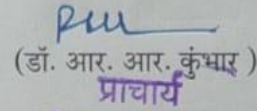 (डॉ. आर. आर. कुंभार )
प्राचार्य